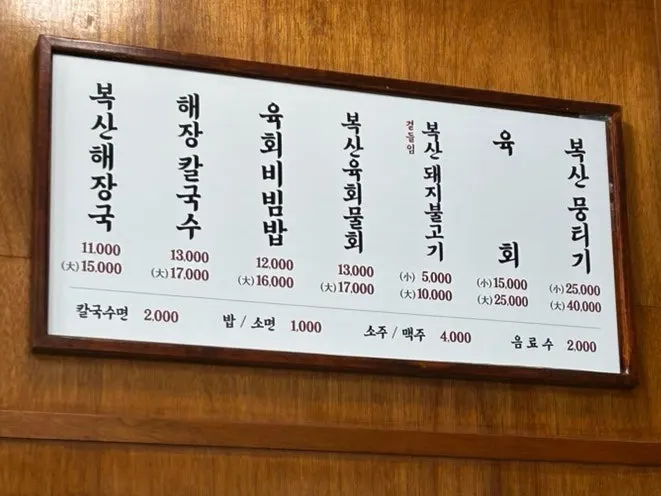 복산해장국
11.000
(大) 15.000
해장 칼국수
13.000
(大) 17.000
육회비빔밥
12.000
(大) 16.000
복산육회물회
13.000
(大) 17.000
곁들임
복산 돼지불고기
(小) 5.000
(大) 10.000
육회
(小) 15.000
(大) 25.000
복산 뭉티기
(小) 25.000
(大) 40.000
칼국수면 2.000
밥 / 소면 1.000
소주 / 맥주 4.000
음료수 2.000